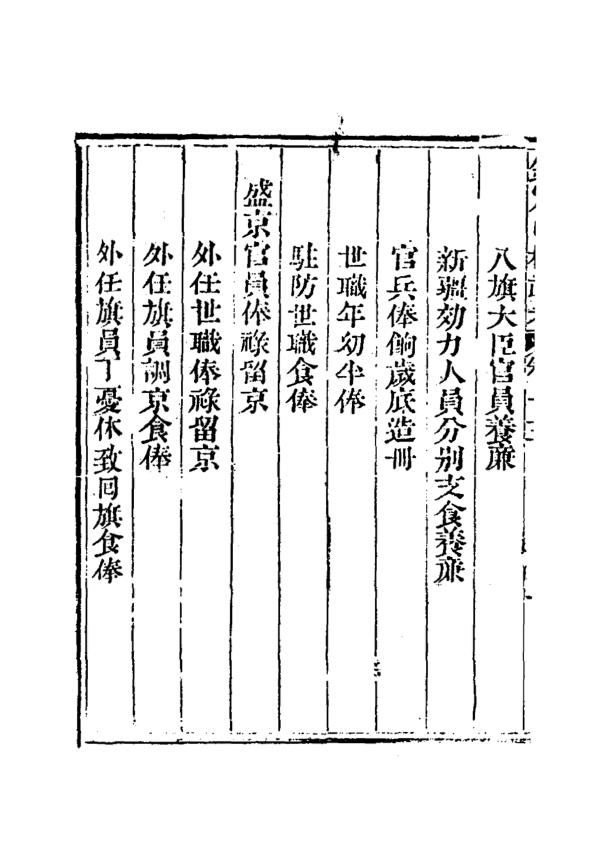 八旗大臣官員養廉
新疆効力人員分別支食養廉
官兵俸餉歲底造冊
世職年幼半俸
駐防世職食俸
盛京官員俸祿留京
外任世職俸祿留京
外任旗員調京食俸
外任旗員丁憂休致囘旗食俸